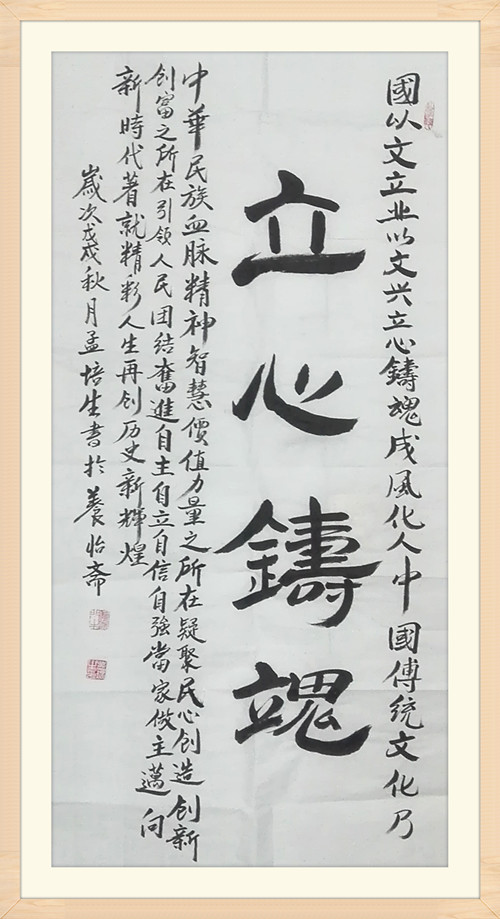 國以文立业以文兴立心鑄魂成風化人中國傳统文化乃
立心鑄魂
中華民族血脉精神智慧價值力量之所在疑聚民心创造创新
创富之所在引领人民团结奮進自主自立自信自強當家做主邁向
新時代著就精彩人生再创历史新輝煌
歲次戊戌秋月孟培生書於養怡斋